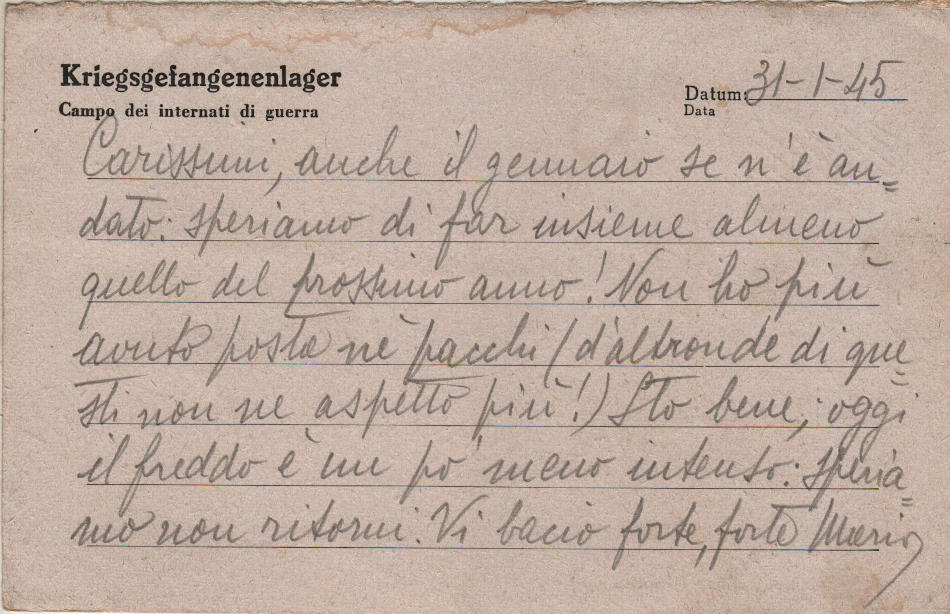 Kriegsgefangenenlager
Campo dei internati di guerra
Datum: 31-1-45
Data
Carissimi, anche il gennaio se n'è an=
dato: speriamo di far insieme almeno
quello del prossimo anno! Non ho più
avuto posta nè pacchi (d'altronde di que=
sti non ne aspetto più!) Sto bene; oggi
il freddo è un po' meno intenso: speria=
mo non ritorni. Vi bacio forte, forte Mario